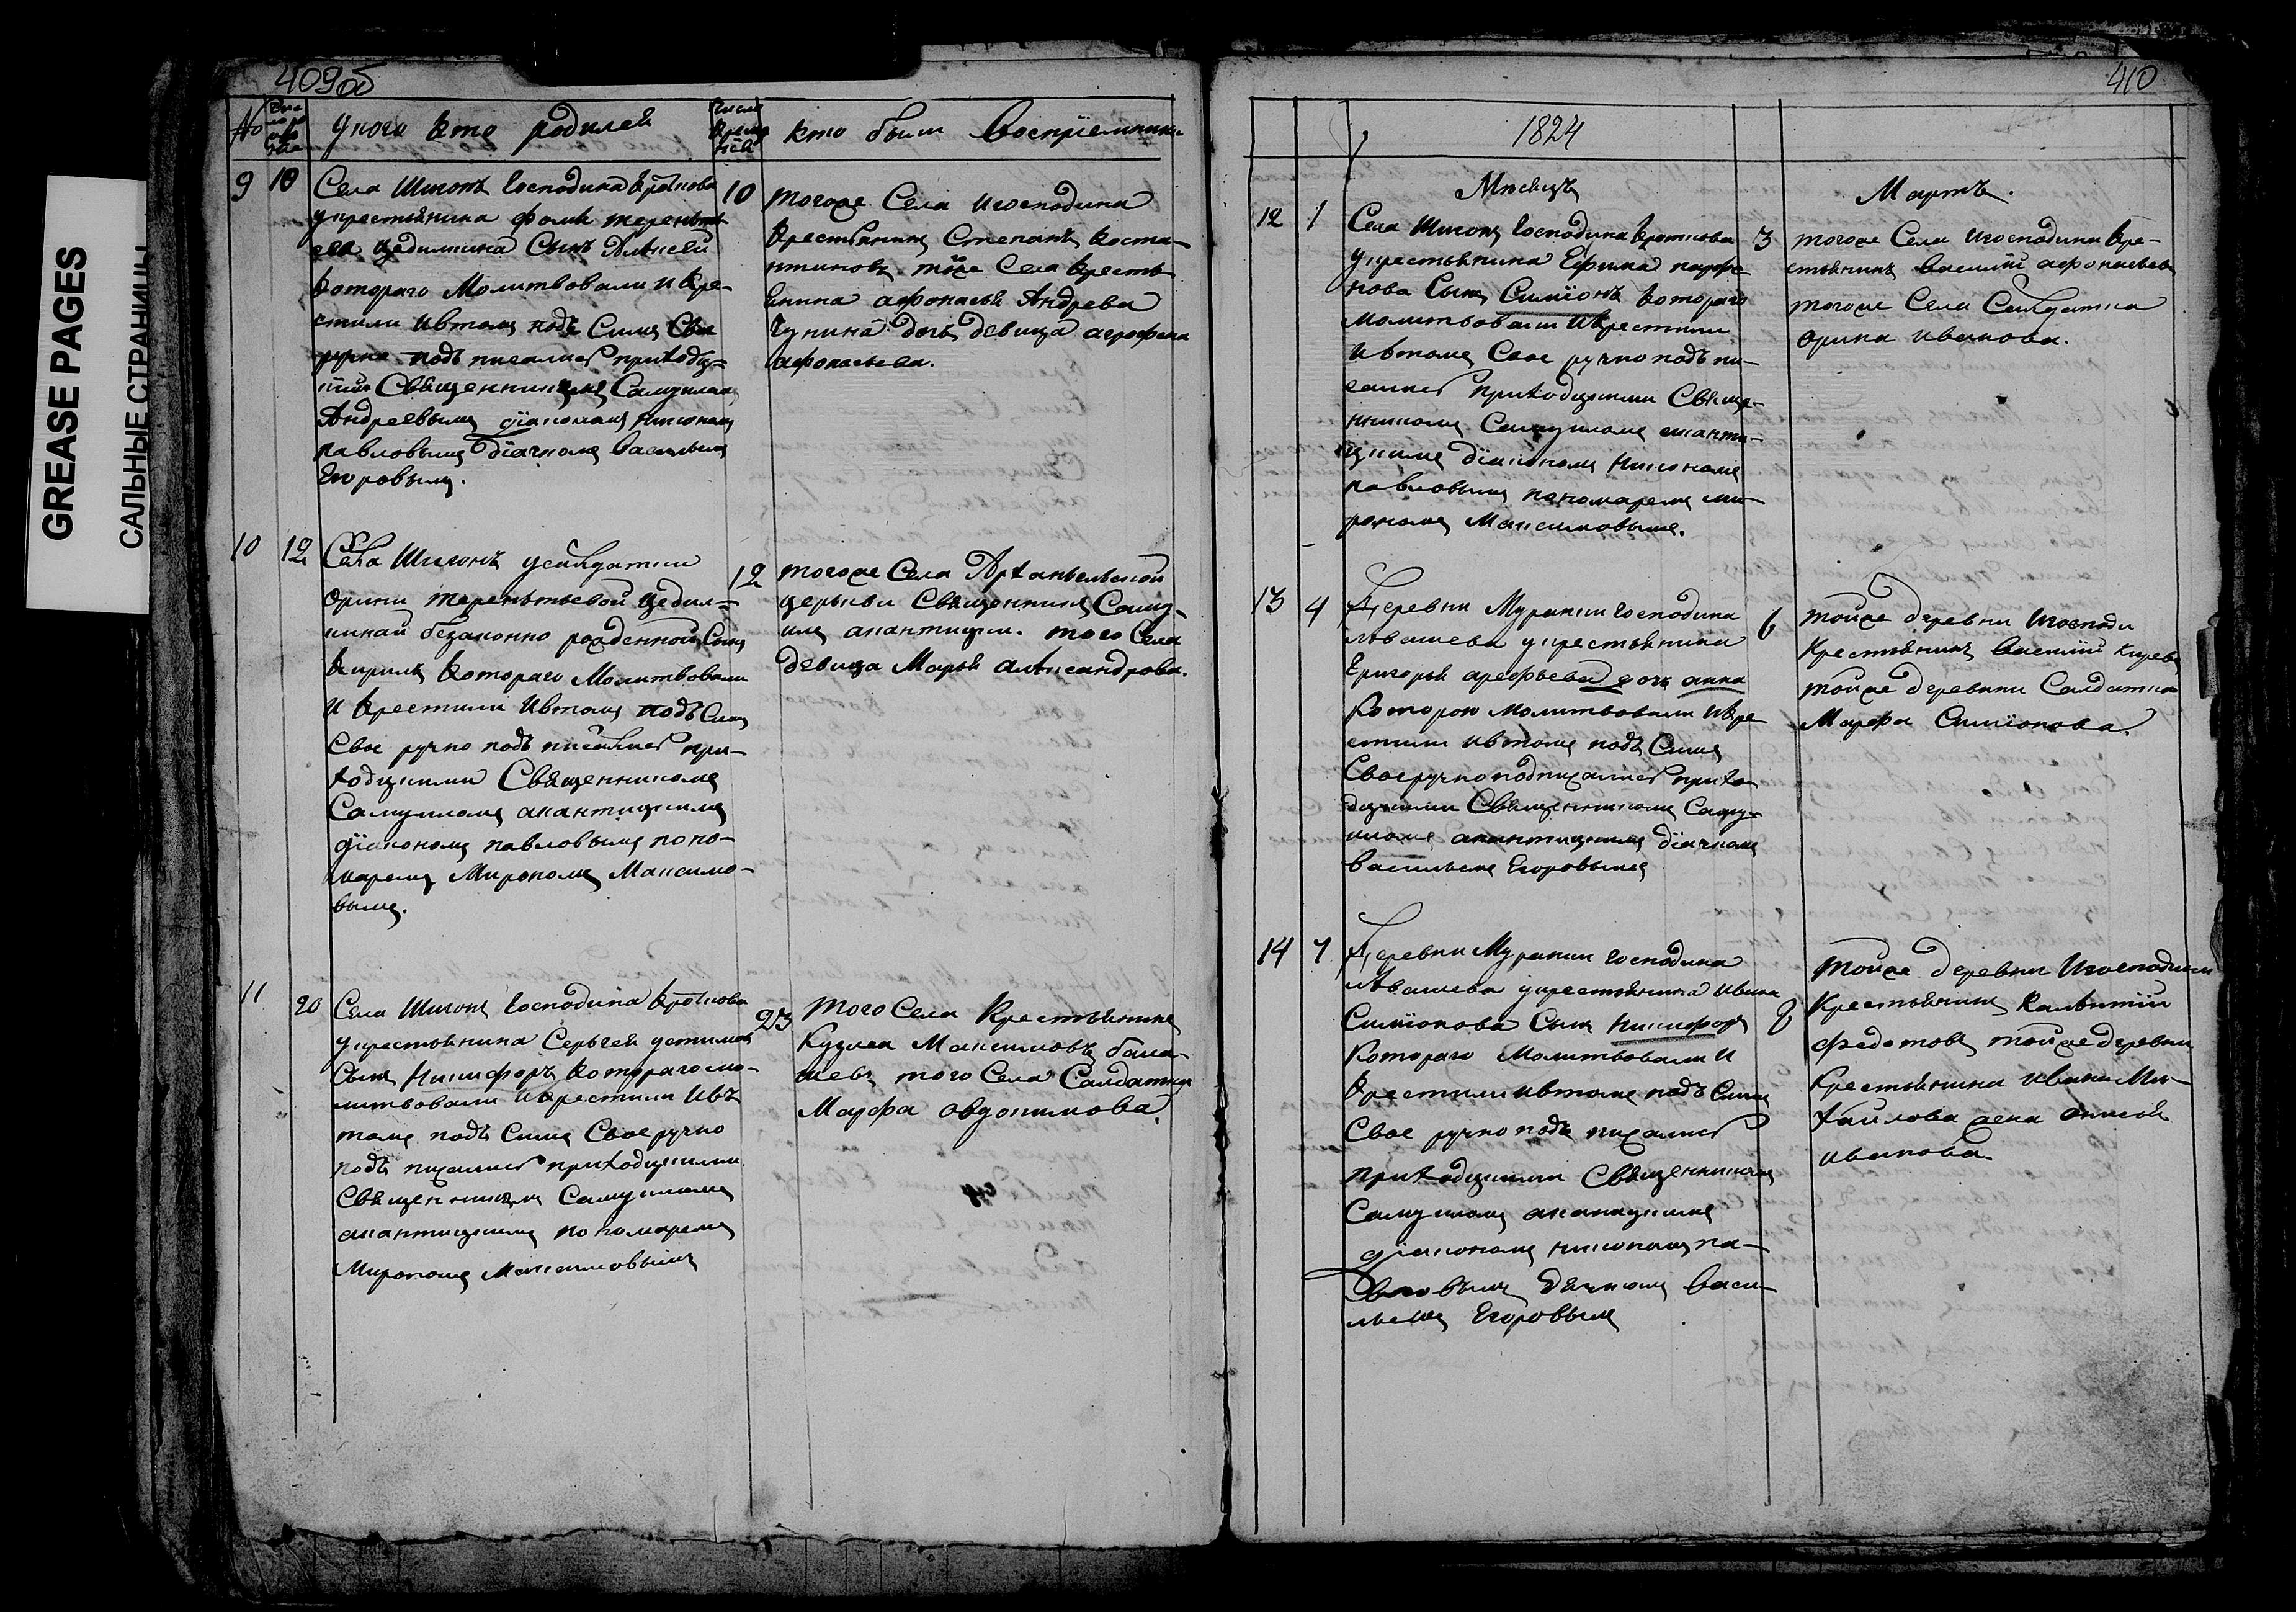 GREASE PAGES
САЛЬНЫЕ СТРАНИЦЫ
409об
№
у кого кто родился
кто были восприемники
9 10
Села Шигонъ господина
у крестьянина Фомы Терентье
ева Цедилкина сынъ Алексей
котораго молитвовали и кре-
стили и въ томъ подъ симъ свое
ручно подъ писались приходъ-
Священникомъ Самуиломъ
Андреевымъ діакономъ Никономъ
Павловымъ діачкомъ Васильемъ
Егоровымъ.
10
тогоже Села и господина
крестьянинъ Степанъ Коста-
нтиновъ тоже Села кресть
янина Афонасья Андреева
Чунина дочь девица Агрофена
Афонасьева.
10 12
Села Шигонъ у солдатки
Орины Терентьевой Цедил-
киной безаконно рожденной сынъ
Кирилъ котораго молитвовали
и крестили и въ томъ подъ симъ
свое ручно подъ писались при-
ходцкими Священникомъ
Самуиломъ
діакономъ Павловымъ поно-
маремъ Мирономъ Максимо-
вымъ.
12
тогоже Села Архангельской
церькви Священникъ Саму-
илъ того Села
девица Марья Александрова.
11 20
Села Шигонъ господина
у крестьянина Сергея Устинова
сынъ Никифоръ котораго мо-
литвовали и крестили и въ
томъ подъ симъ свое ручно
подъ писались приходцкими
Священникомъ Самуиломъ
пономаремъ
Мирономъ Максимовымъ
23
того Села крестьянинъ
Кузма Максимовъ
того Села Салдатка
Марфа Овдокимова
410
1824
Месяцъ
Мартъ.
12 1
Села Шигонъ господина
у крестьянина Ефима Парфе
нова сынъ Симіонъ котораго
молитвовали и крестили
и въ томъ свое ручно подъ пи-
сались приходцкими Свяще-
нникомъ Самуиломъ
діакономъ Никономъ
Павловымъ пономаремъ Ми-
рономъ Максимовымъ.
3
тогоже Села и господина кре-
стьянинъ Василій Афонасьевъ
тогоже Села Салдатка
Орина Иванова.
13 4
Деревни Муранки господина
Ивашева у крестьянина
Григорья Арефьева дочь Анна
которою молитвовали и кре
стили и въ томъ подъ симъ
своеручно подписались прихо
дцкими Священникомъ Саму-
иломъ діачкомъ
Васильемъ Егоровымъ
6
тойже деревни и господи
крестьянинъ Василій
тойже деревни Салдатка
Марфа Симіонова
14 7
Деревни Муранки господина
Ивашева у крестьянина Ивана
Симіонова сынъ Никифоръ
котораго молитвовали и
крестили и въ томъ подъ симъ
свое ручно подъ писались
приходцкими Священникомъ
Самуиломъ
діакономъ Никономъ Па-
вловымъ дьячкомъ Васи-
льемъ Егоровымъ
8
тойже деревни и господина
крестьянинъ
Федотовъ тойже деревни
крестьянина Ивана Ми-
хайлова жена Анисья
Иванова.